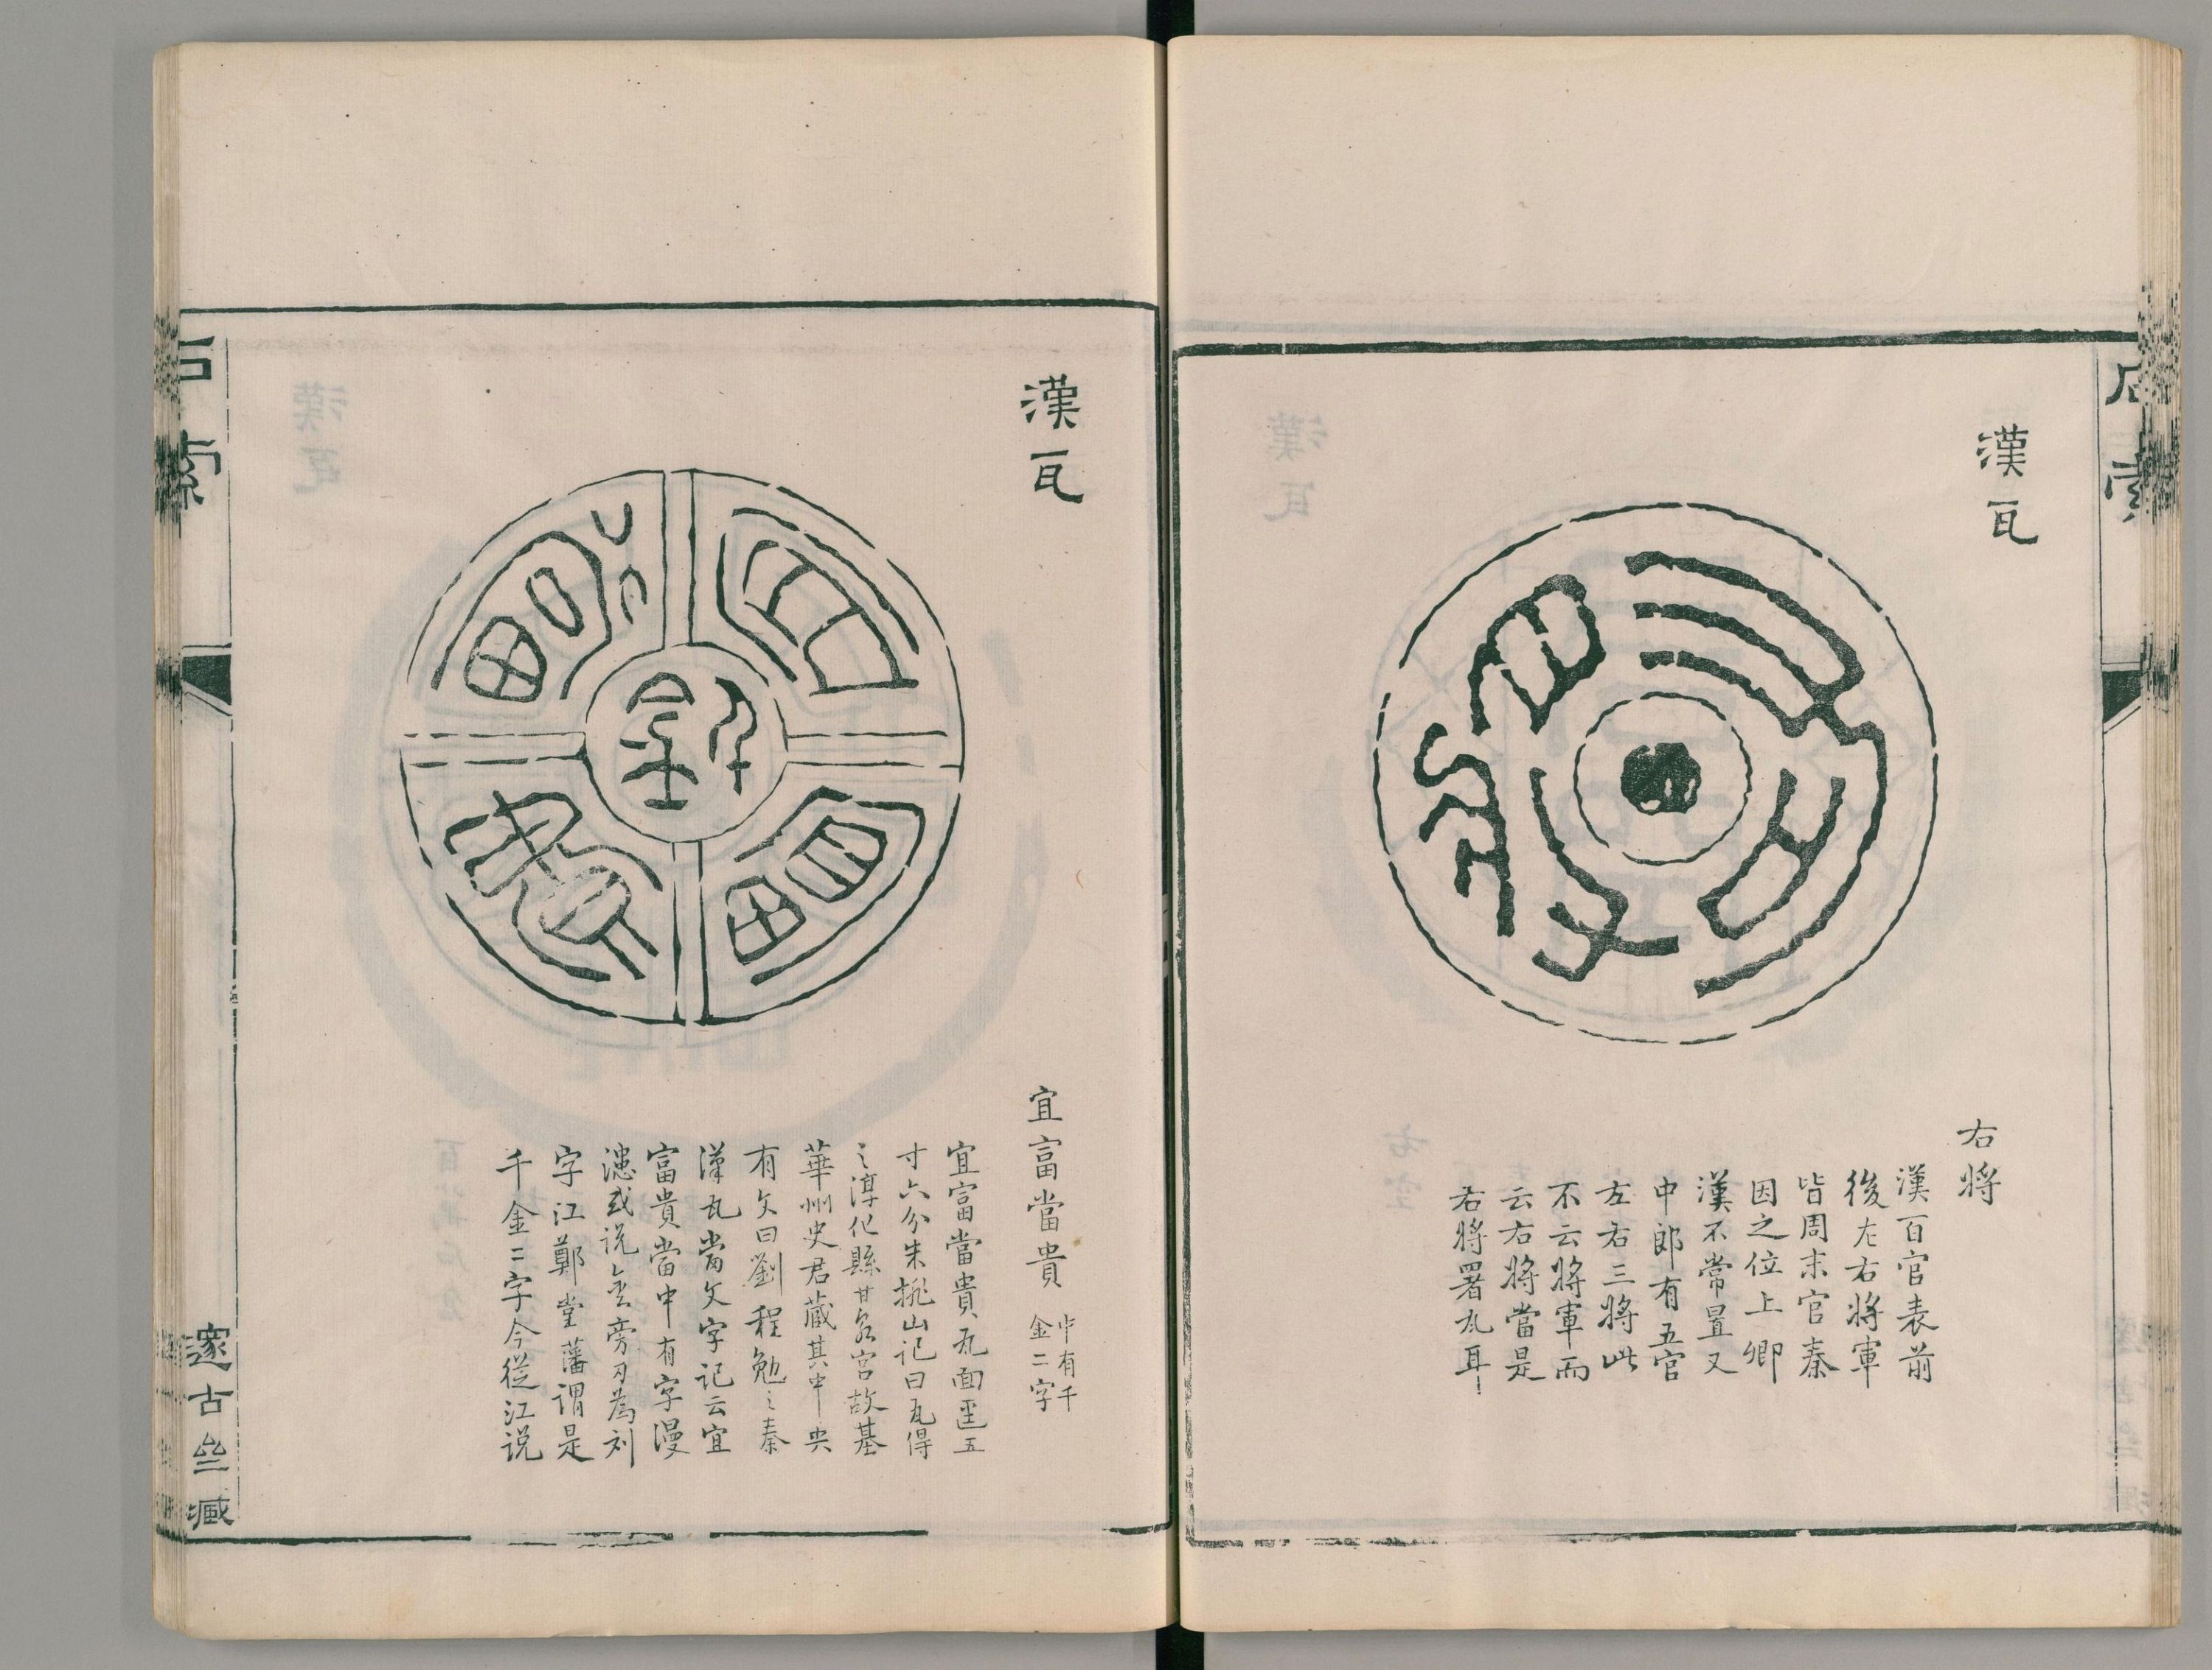 漢瓦
右將
漢百官表前
後左右將軍
皆周末官秦
因之位上卿
漢不常置又
中郎有五官
左右三將此
不云將軍而
云右將當是
右將署瓦耳
石索
漢瓦
宜富當貴
千金
宜富當貴 中有千
金二字
宜富當貴瓦面徑五
寸六分朱排山記曰瓦得
之淳化縣甘泉宮故基
華州史君藏其中央
有文曰劉程勉之秦
漢瓦當文字記云宜
富貴當中有字漫
漶或说金旁刃為刘
字江鄭堂藩謂是
千金二字今從江说
石索
邃古亝臧